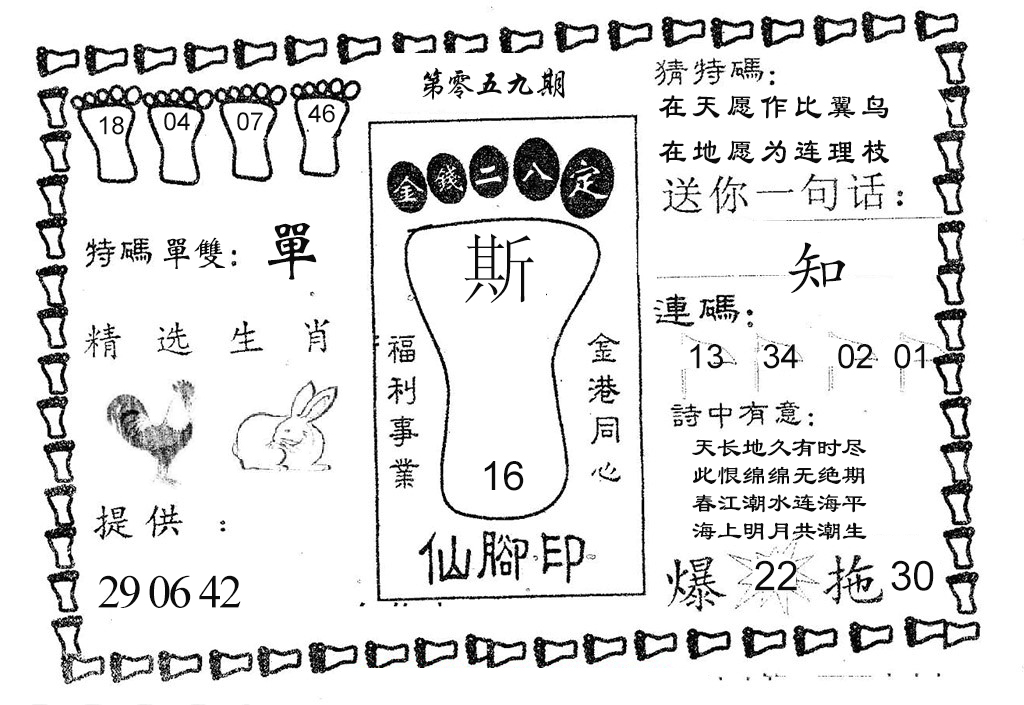 第零五九期
18 04 07 46
特碼單雙: 單
精选生肖
提供:
29 06 42
金錢二八定
斯
福利事業
金港同心
16
仙腳印
猜特碼:
在天愿作比翼鸟
在地愿为连理枝
送你一句话:
知
連碼:
13 34 02 01
詩中有意:
天长地久有时尽
此恨绵绵无绝期
春江潮水连海平
海上明月共潮生
爆 22 拖 30